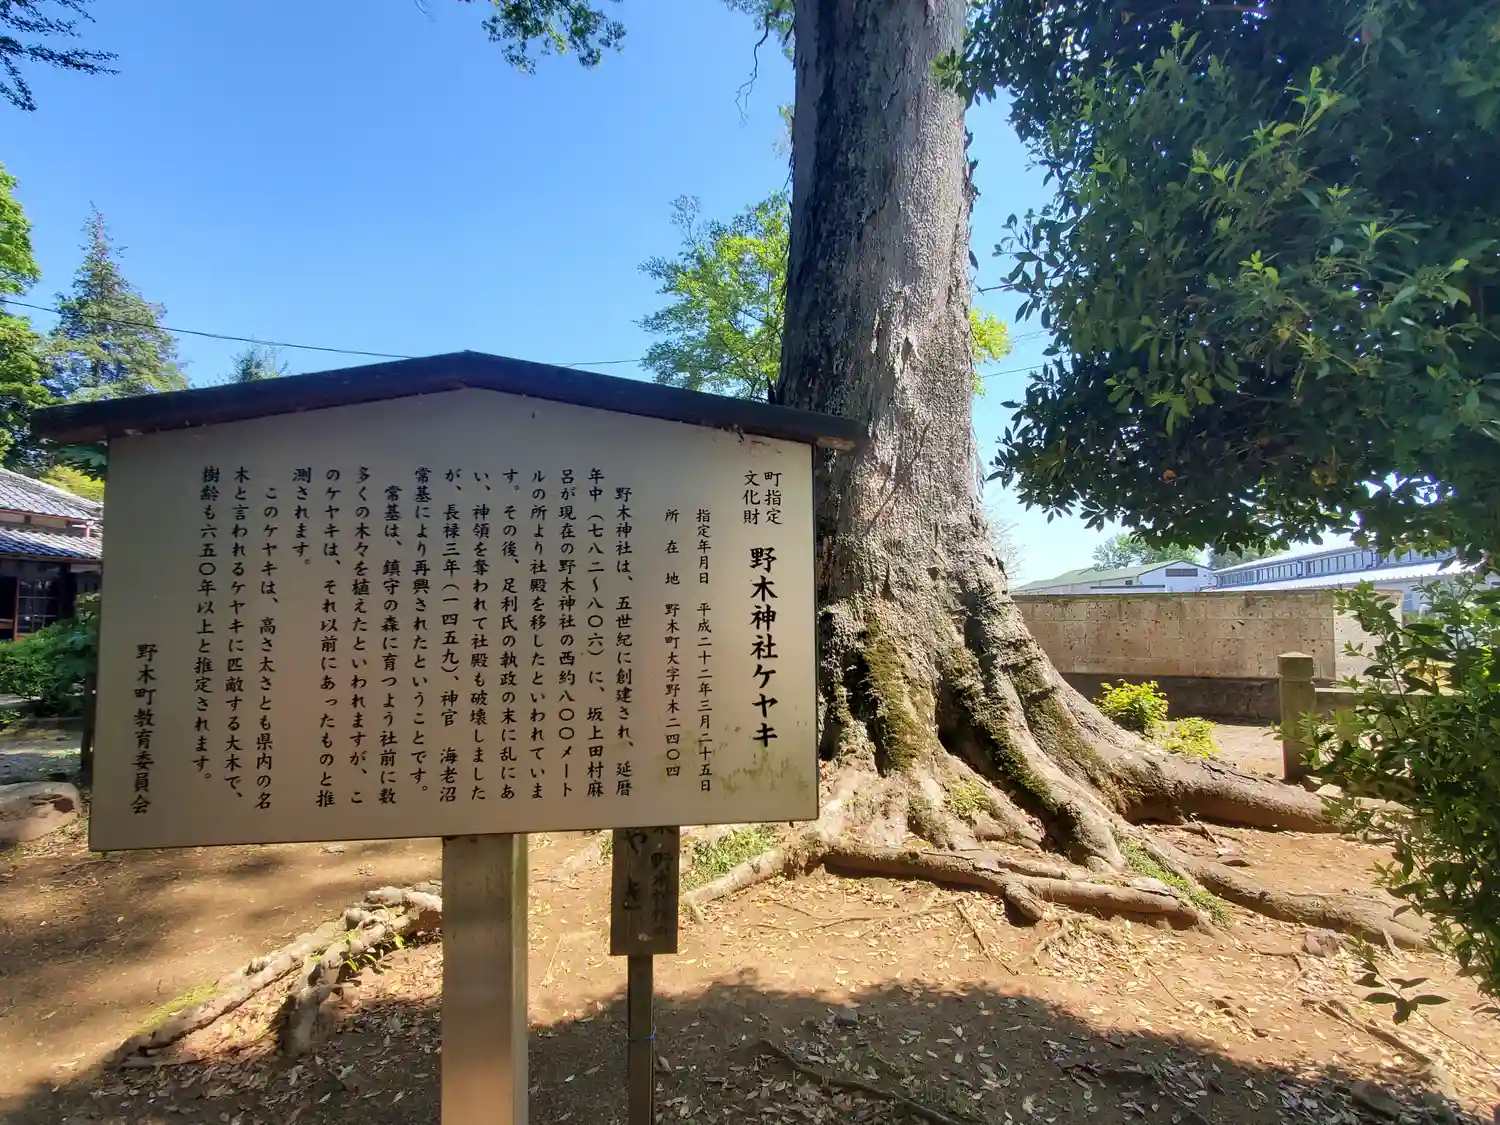 町指定
文化財
野木神社ケヤキ
指定年月日 平成二十二年三月二十五日
所在地 野木町大字野木二四〇四
野木神社は、五世紀に創建され、延暦
年中（七八二～八〇六）に、坂上田村麻
呂が現在の野木神社の西約八〇〇メート
ルの所より社殿を移したといわれていま
す。その後、足利氏の執政の末に乱にあ
い、神領を奪われて社殿も破壊しました
が、長禄三年（一四五九）、神官 海老沼
常基により再興されたということです。
常基は、鎮守の森に育つよう社前に数
多くの木々を植えたといわれますが、こ
のケヤキは、それ以前にあったものと推
測されます。
このケヤキは、高さ太さとも県内の名
木と言われるケヤキに匹敵する大木で、
樹齢も六五〇年以上と推定されます。
野木町教育委員会
やき